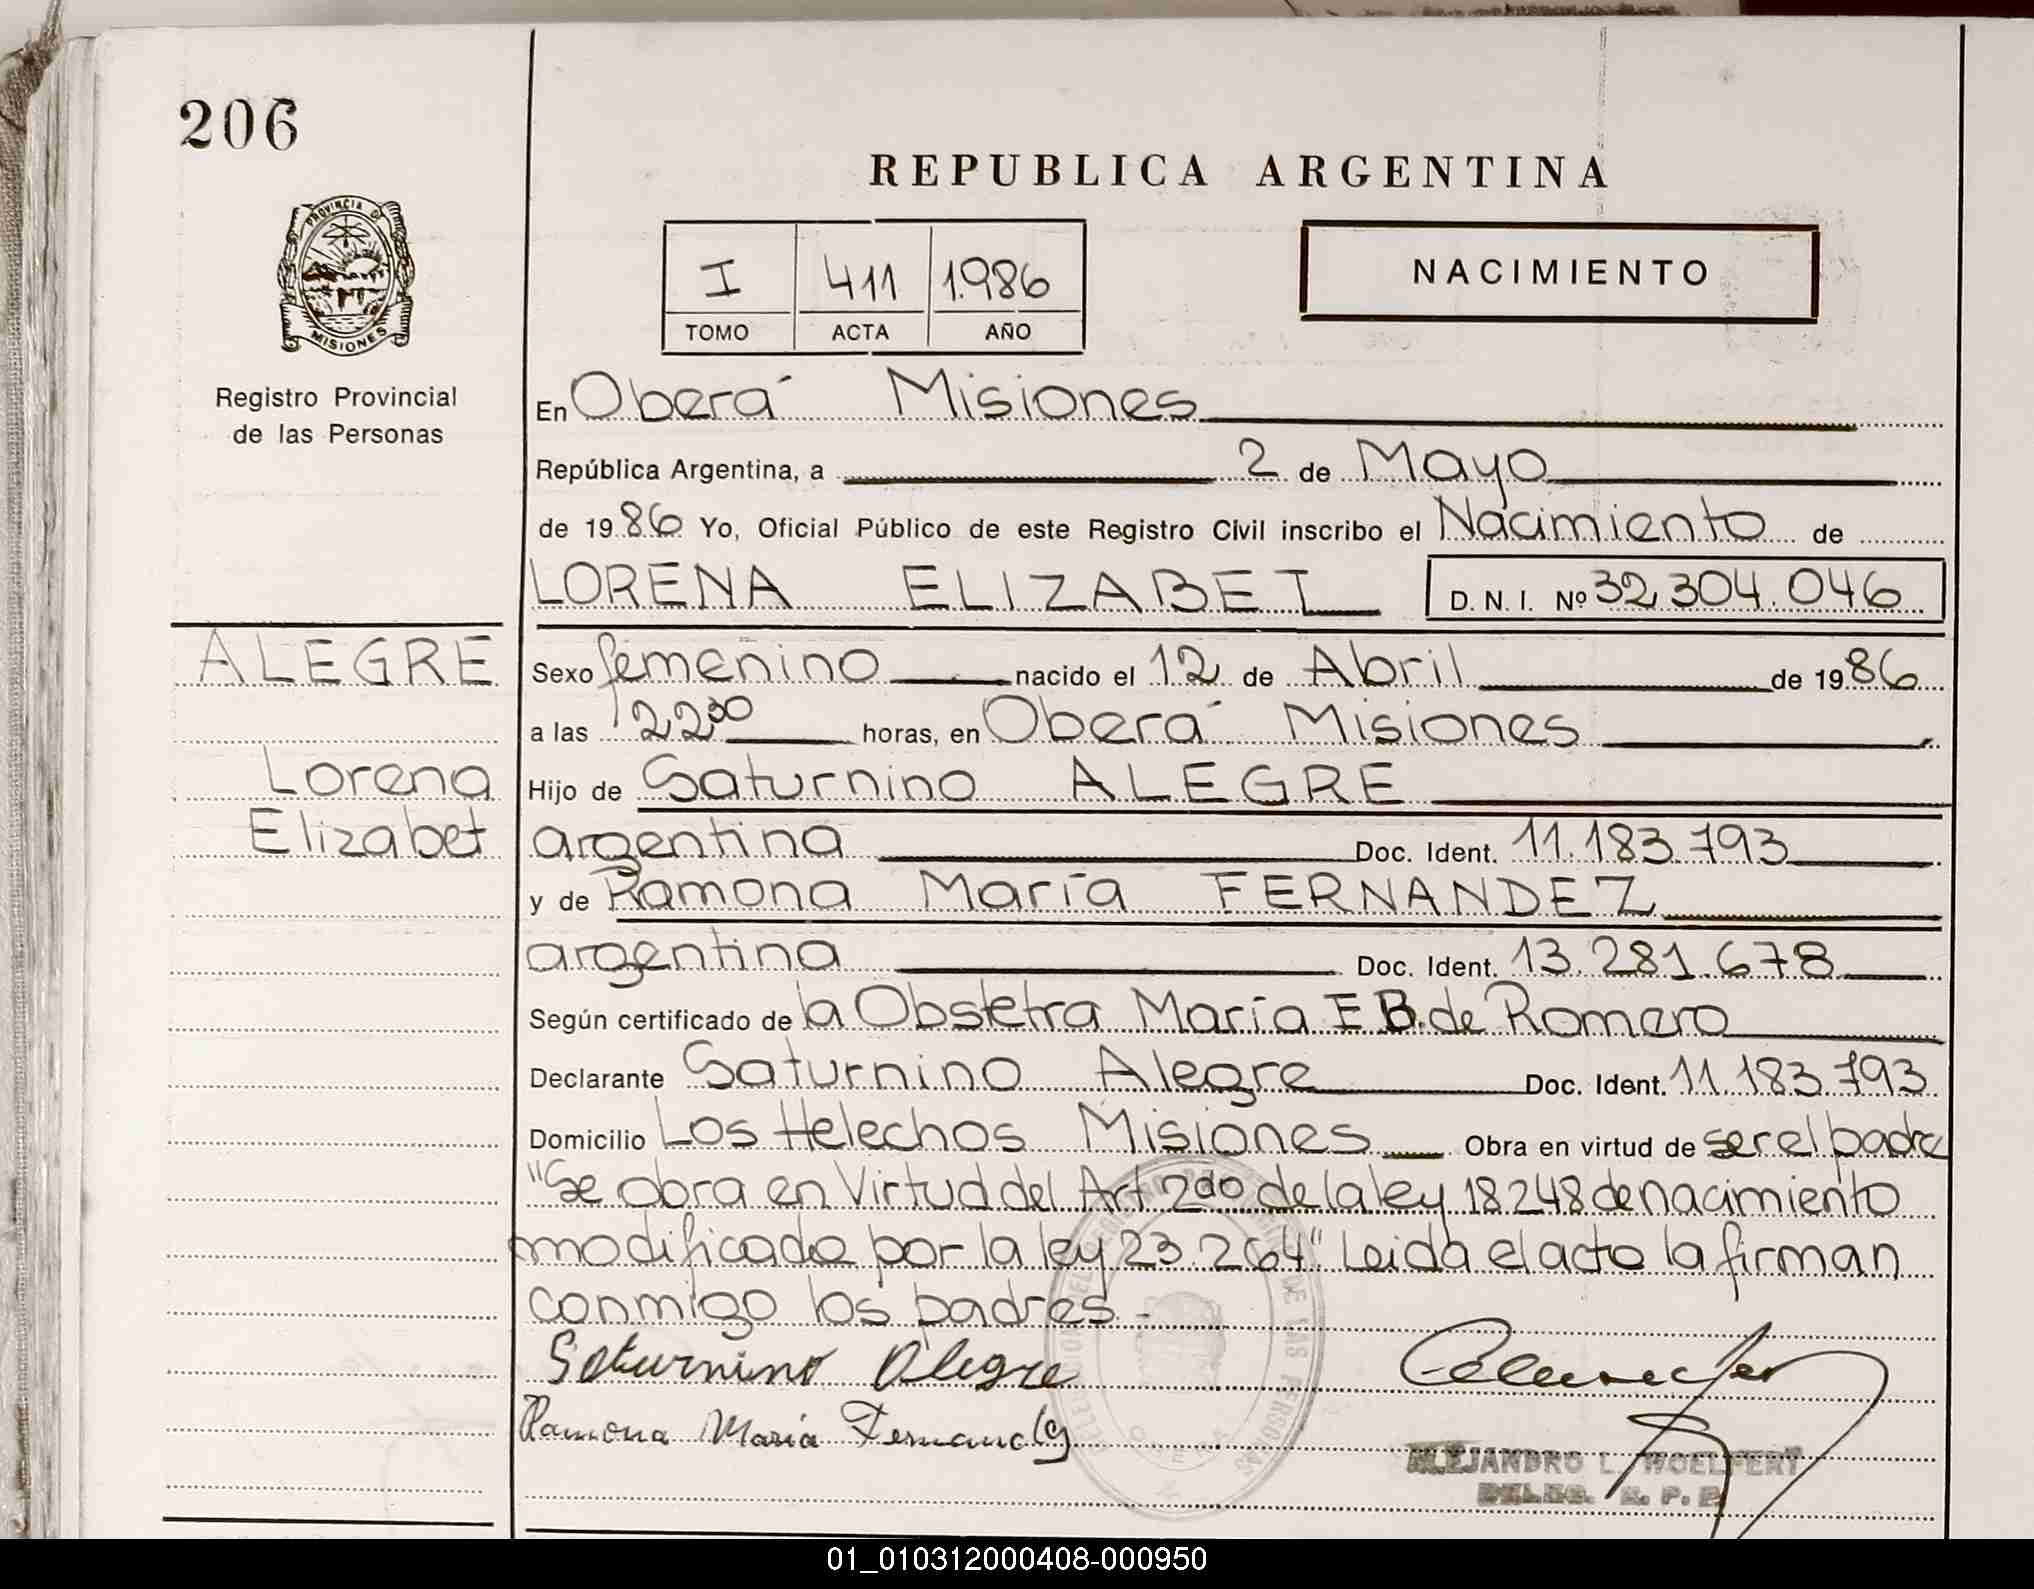 206
REPUBLICA ARGENTINA
PROVINCIA D
MISIONES
I 411 1.986
TOMO ACTA AÑO
NACIMIENTO
Registro Provincial
de las Personas
En Oberá Misiones
República Argentina, a 2 de Mayo
de 19 86 Yo, Oficial Público de este Registro Civil inscribo el Nacimiento de
LORENA ELIZABET D. N. I. Nº 32.304.046
ALEGRE
Lorena
Elizabet
Sexo femenino nacido el 12 de Abril de 19 86
a las 22 30 horas, en Oberá Misiones
Hijo de Saturnino ALEGRE
argentina Doc. Ident. 11.183.793
y de Ramona María FERNANDEZ
argentina Doc. Ident. 13.281.678
Según certificado de la Obstetra María E B. de Romero
Declarante Saturnino Alegre Doc. Ident. 11.183.793
Domicilio Los Helechos Misiones Obra en virtud de ser el padre
"Se obra en Virtud del Art 2do de la ley 18248 de nacimiento
modificado por la ley 23.264" Leida el acto la firman
conmigo los padres.-
Saturnino Alegre
Ramona Maria Fernandez
ALEJANDRO L. WOELFERT
DELEG. R. P. P.
01_010312000408-000950